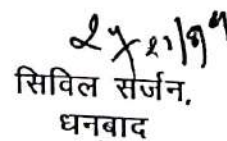 सिविल सर्जन,
धनबाद